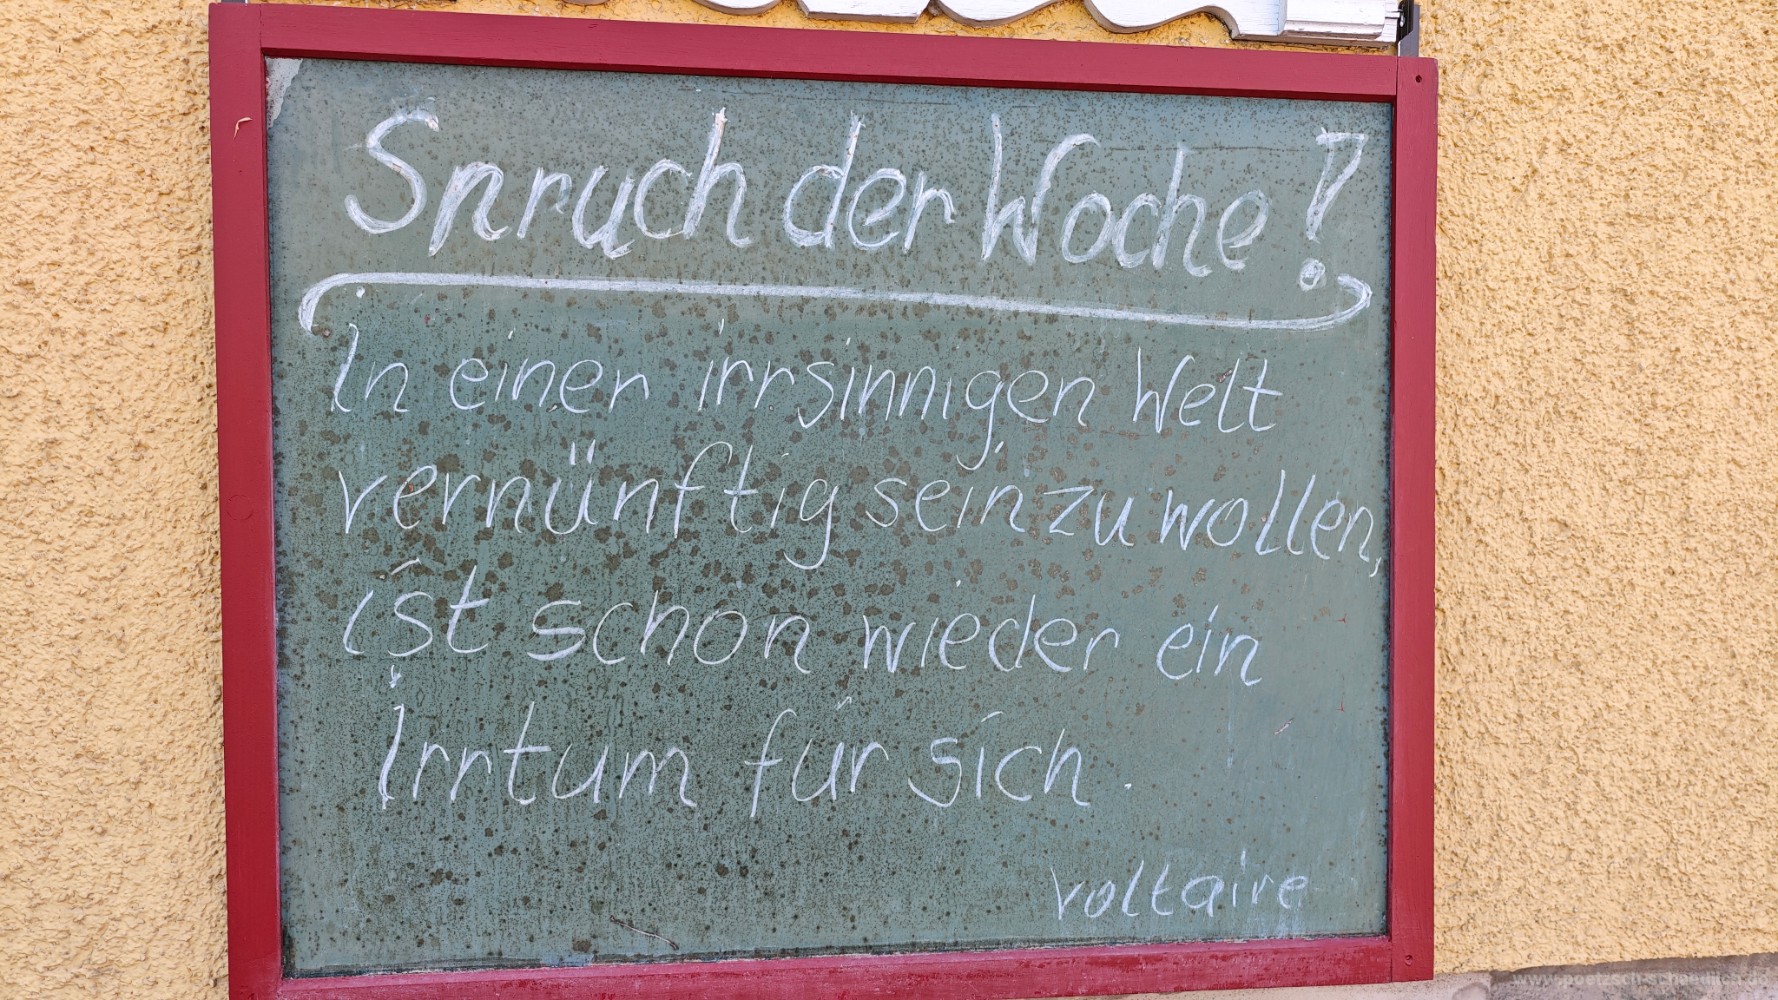 Spruch der Woche!
In einer irrsinnigen Welt
vernünftig sein zu wollen,
ist schon wieder ein
Irrtum für sich.
Voltaire